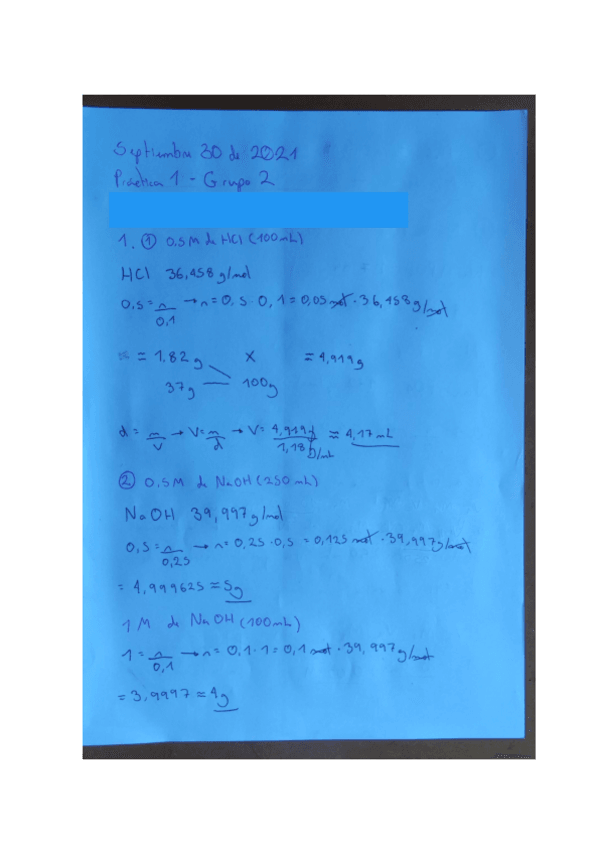 Septiembre 30 de 2021
Práctica 1 - Grupo 2
1. ① 0.5M de HCl (100mL)
HCl 36,458 g/mol
0,5 = n/0,1 → n = 0,5 · 0,1 = 0,05 mol · 36,458 g/mol
≈ 1,82 g X ≈ 4,919 g
37g 100g
d = m/V → V = m/d → V = 4,919 g/1,18 g/mL ≈ 4,17 mL
② 0,5M de NaOH (250 mL)
NaOH 39,997 g/mol
0,5 = n/0,25 → n = 0,25 · 0,5 = 0,125 mol · 39,997 g/mol
= 4,999625 ≈ 5g
1 M de NaOH (100mL)
1 = n/0,1 → n = 0,1 · 1 = 0,1 mol · 39,997 g/mol
= 3,9997 ≈ 4g